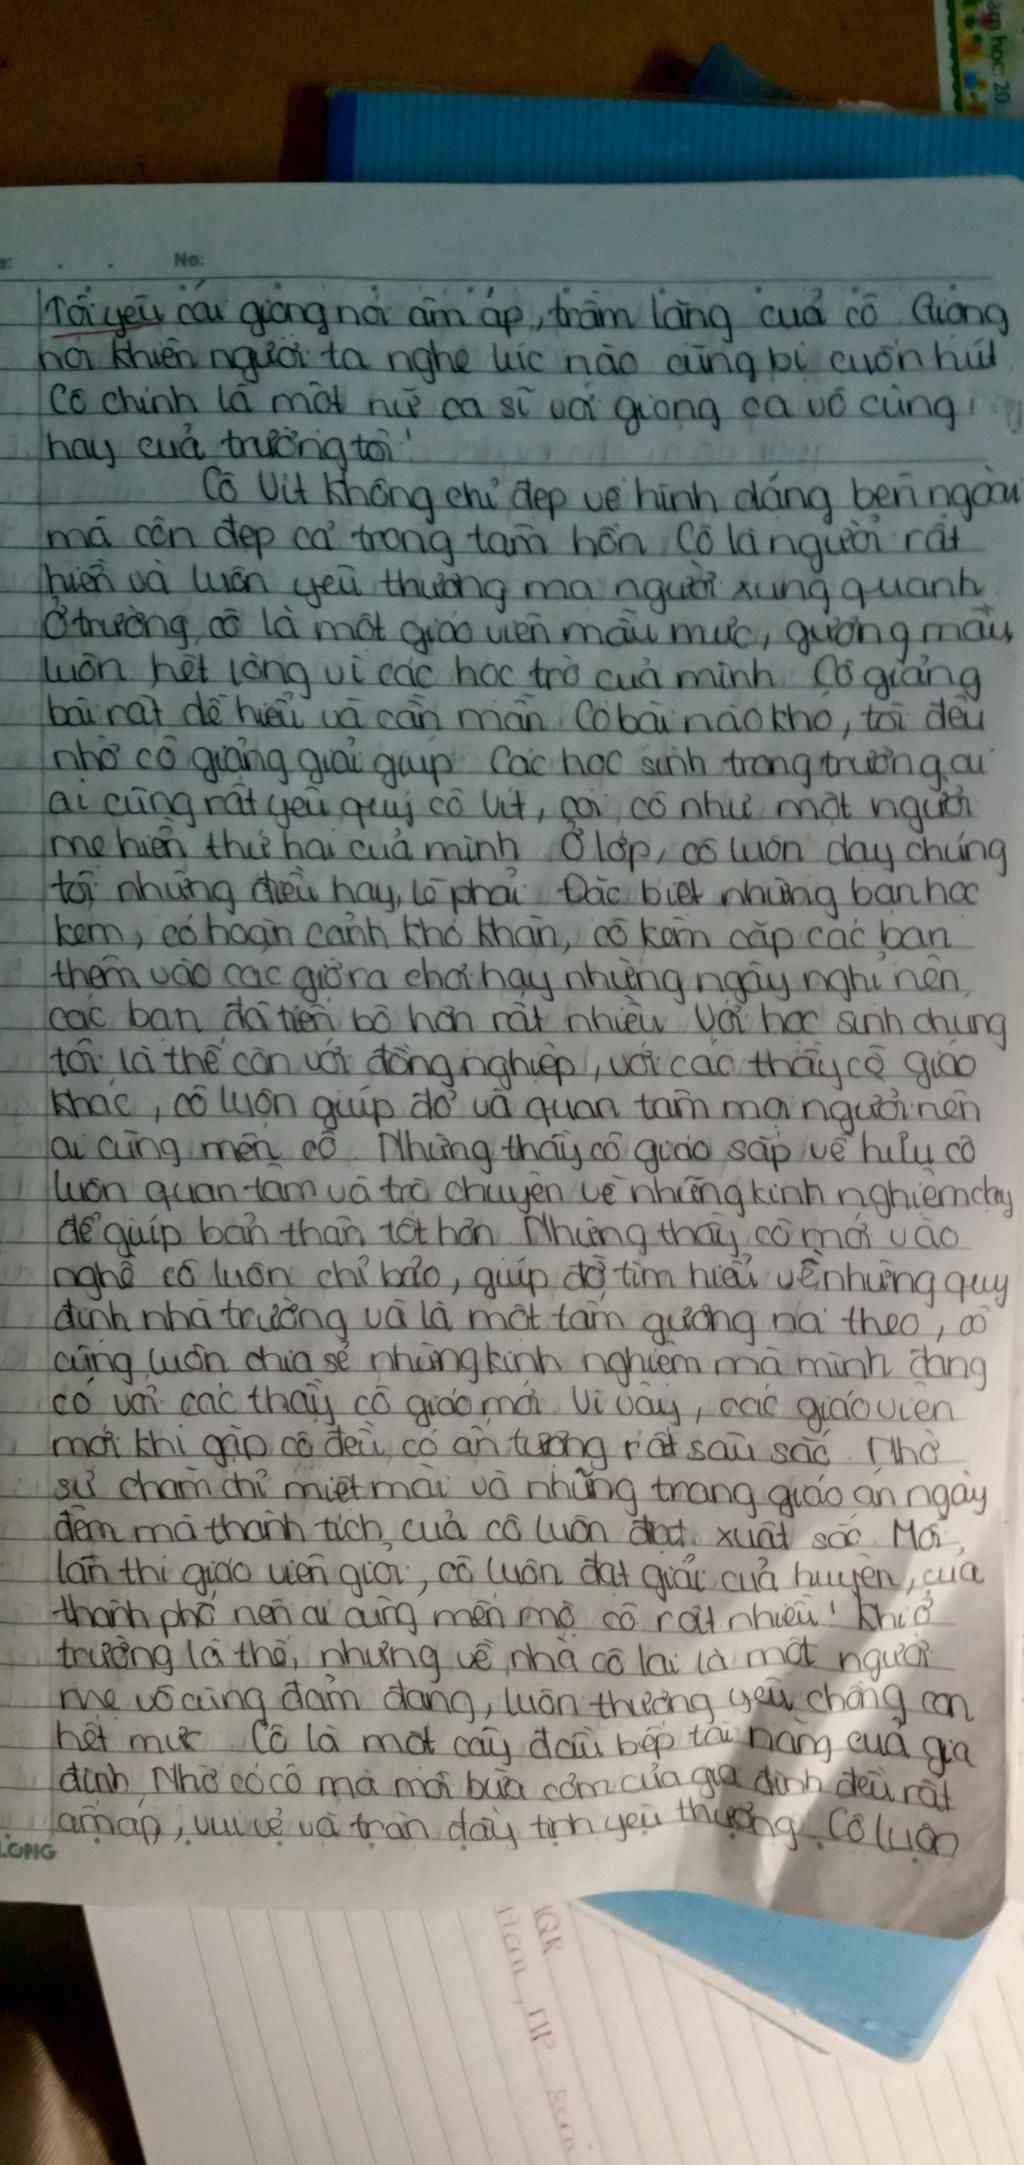 No:
Tôi yêu cái giọng nói ấm áp, trầm lắng của cô. Giọng
nói khiến người ta nghe lúc nào cũng bị cuốn hút.
Cô chính là một nữ ca sĩ với giọng ca vô cùng
hay của trường tôi!
Cô Vit không chỉ đẹp về hình dáng bên ngoài
mà còn đẹp cả trong tâm hồn. Cô là người rất
hiền và luôn yêu thương mọi người xung quanh.
Ở trường, cô là một giáo viên mẫu mực, gương mẫu,
luôn hết lòng vì các học trò của mình. Cô giảng
bài rất dễ hiểu và cần mẫn. Có bài nào khó, tôi đều
nhờ cô giảng giải giúp. Các học sinh trong trường, ai
ai cũng rất yêu quý cô Vit, coi cô như một người
mẹ hiền thứ hai của mình. Ở lớp, cô luôn dạy chúng
tôi những điều hay, lẽ phải. Đặc biệt những bạn học
kém, có hoàn cảnh khó khăn, cô kèm cặp các bạn
thêm vào các giờ ra chơi hay những ngày nghỉ nên
các bạn đã tiến bộ hơn rất nhiều. Với học sinh chúng
tôi là thế còn với đồng nghiệp, với các thầy cô giáo
khác, cô luôn giúp đỡ và quan tâm mọi người nên
ai cũng mến cô. Những thầy cô giáo sắp về hưu cô
luôn quan tâm và trò chuyện về những kinh nghiệm dạy
để giúp bản thân tốt hơn. Những thầy cô mới vào
nghề cô luôn chỉ bảo, giúp đỡ tìm hiểu về những quy
định nhà trường và là một tấm gương noi theo, cô
cũng luôn chia sẻ những kinh nghiệm mà mình đang
có với các thầy cô giáo mới. Vì vậy, các giáo viên
mới khi gặp cô đều có ấn tượng rất sâu sắc. Nhờ
sự chăm chỉ miệt mài và những trang giáo án ngày
đêm mà thành tích của cô luôn đạt xuất sắc. Mỗi
lần thi giáo viên giỏi, cô luôn đạt giải của huyện, của
thành phố nên ai cũng mến mộ cô rất nhiều! Khi ở
trường là thế, nhưng về nhà cô lại là một người
mẹ vô cùng đảm đang, luôn thương yêu chồng con
hết mực. Cô là một cây đầu bếp tài năng của gia
đình. Nhờ có cô mà mỗi bữa cơm của gia đình đều rất
ấm áp, vui vẻ và tràn đầy tình yêu thương. Cô luôn
LONG